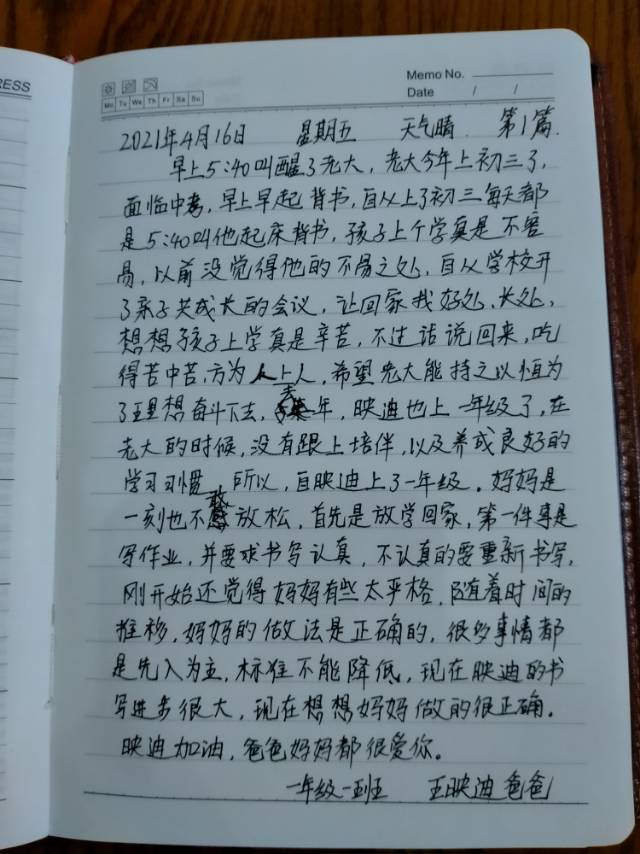 RESS
Memo No.
Mo Tu We Th Fr Sa Su
Date / /
2021年4月16日 星期五 天气晴 第1篇.
早上5:40叫醒了老大,老大今年上初三了,
面临中考,早上早起背书,自从上了初三每天都
是5:40叫他起床背书,孩子上个学真是不容
易,以前没觉得他的不易之处,自从学校开
了亲子共成长的会议,让回家找好处、长处,
想想孩子上学真是辛苦,不过话说回来,吃
得苦中苦,方为人上人,希望老大能持之以恒为
了理想奋斗下去,去年,映迪也上一年级了,在
老大的时候,没有跟上培伴,以及养成良好的
学习习惯,所以,自映迪上了一年级,妈妈是
一刻也不敢放松,首先是放学回家,第一件事是
写作业,并要求书写认真,不认真的要重新书写,
刚开始还觉得妈妈有些太严格,随着时间的
推移,妈妈的做法是正确的,很多事情都
是先入为主,标准不能降低,现在映迪的书
写进步很大,现在想想妈妈做的很正确。
映迪加油,爸爸妈妈都很爱你。
一年级一班 王映迪爸爸